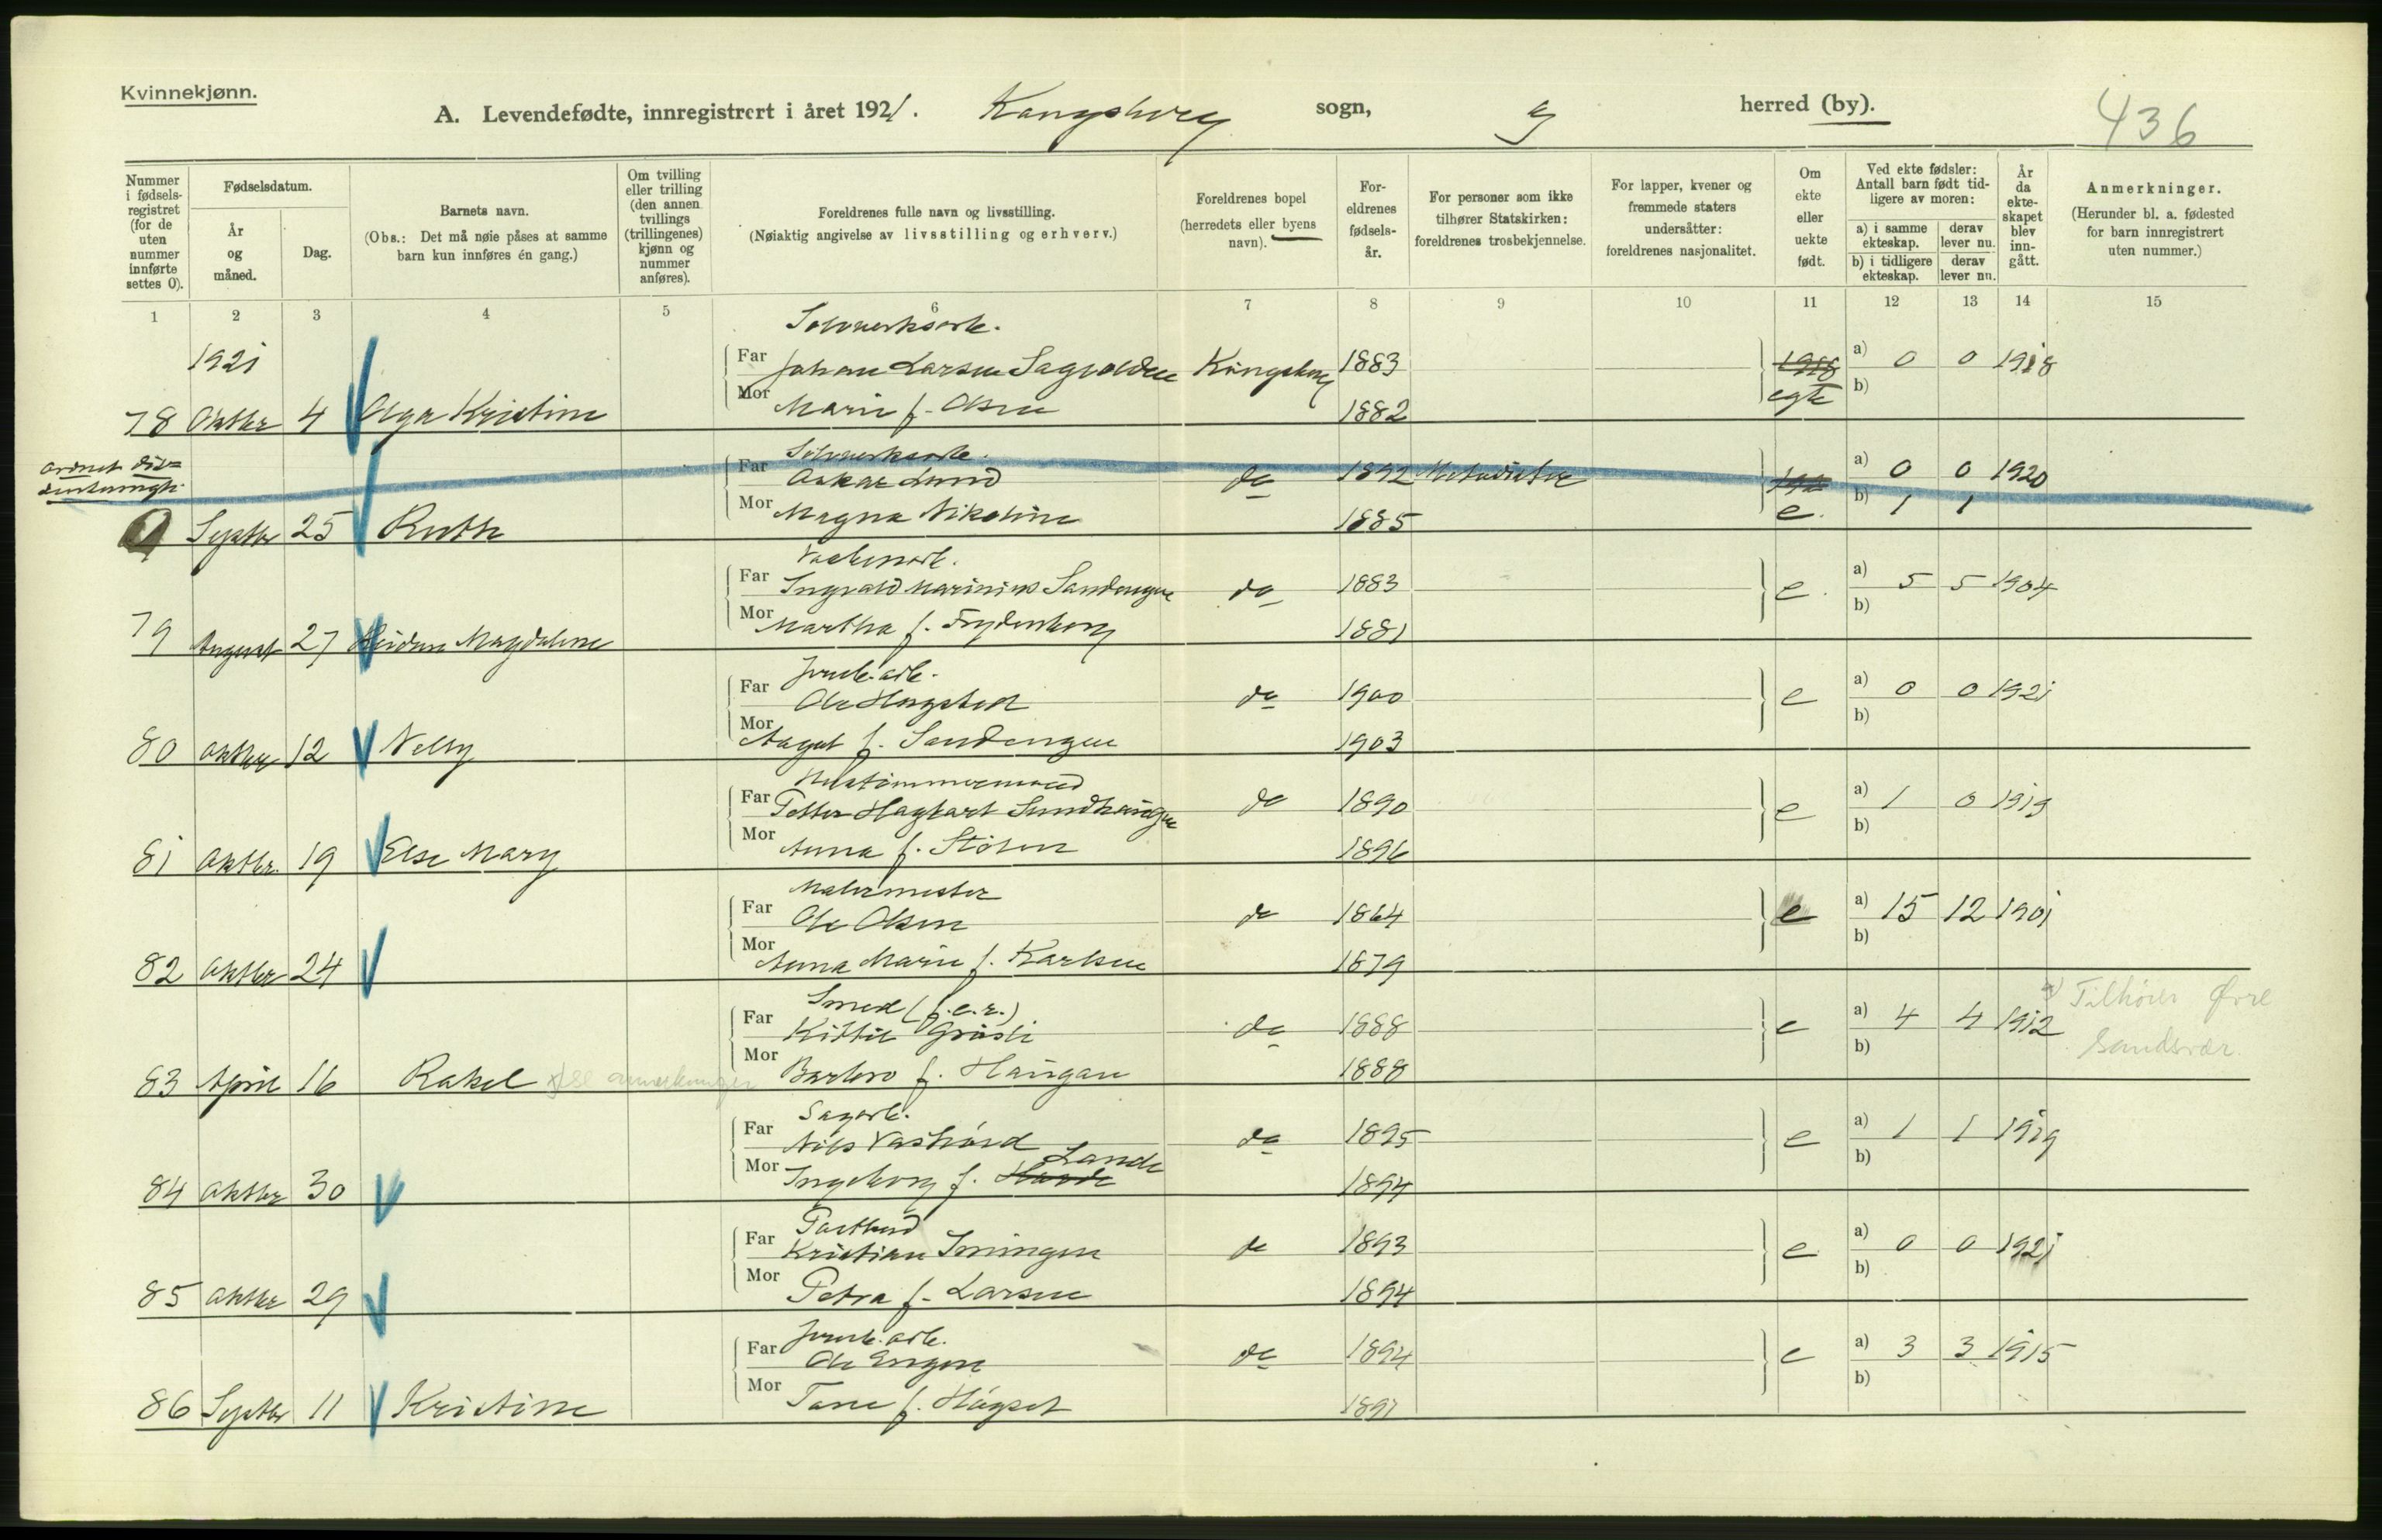 Kvinnekjønn.
A. Levendefødte, innregistrert i året 1921. Kongsberg sogn, herred (by). 436
Nummer i fødselsregistret (for de uten nummer innførte settes 0).
Fødselsdatum.
År og måned.
Dag.
Barnets navn.
(Obs.: Det må nøie påses at samme barn kun innføres én gang.)
Om tvilling eller trilling (den annen tvillings (trillingenes) kjønn og nummer anføres).
Foreldrenes fulle navn og livsstilling.
(Nøiaktig angivelse av livsstilling og erhverv.)
Foreldrenes bopel
(herredets eller byens navn).
Foreldrenes fødselsår.
For personer som ikke tilhører Statskirken: foreldrenes trosbekjennelse.
For lapper, kvener og fremmede staters undersåtter: foreldrenes nasjonalitet.
Om ekte eller uekte født.
Ved ekte fødsler: Antall barn født tidligere av moren:
a) i samme ekteskap. derav lever nu.
b) i tidligere ekteskap. derav lever nu.
År da ekteskapet blev inngått.
Anmerkninger.
(Herunder bl. a. fødested for barn innregistrert uten nummer.)
1 2 3 4 5 6 7 8 9 10 11 12 13 14 15
1921
Sølvverksarb.
Far Johan Larsen Sagvolden Kongsberg 1883 1918 a) 0 0 1918
78 Oktbr 4 Olga Kristine Mor Marie f. Olsen 1882 egte b)
Sølvverksarb.
Far Oskar Lund do 1892 Metodister a) 0 0 1920
0 Septbr 25 Ruth Mor Magna Nikoline 1885 e. b) 1 1
Far Ingvald Marinius Sandengen do 1883 e. a) 5 5 1904
79 August 27 Magdalene Mor Martha f. Frydenberg 1881 b)
Far Ole Hogstedt do 1900 e a) 0 0 1921
80 Oktbr 12 Nelly Mor Aagot f. Sandengen 1903 b)
Far Petter Hagbart Sundhaugen do 1890 e a) 1 0 1919
81 Oktbr. 19 Else Mary Mor Anna f. Stølen 1896 b)
Malermester
Far Ole Olsen do 1864 e a) 15 12 1901
82 Oktbr 24 Mor Anna Marie f. Karlsen 1879 b)
Smed (j.e.r.)
Far Kittil Gråsli do 1888 e a) 4 4 1912 x) Tilhører Øvre Sandsvær.
83 April 16 Rakel x) se anmerkninger Mor Barbro f. Haugan 1888 b)
Sagarb.
Far Nils do 1895 e a) 1 1 1919
84 Oktbr 30 Mor Ingeborg f. Lande 1894 b)
Postbud
Far Kristian Smingen do 1893 e a) 0 0 1921
85 Oktbr 29 Mor Petra f. Larsen 1894 b)
Far Ole Engen do 1894 e a) 3 3 1915
86 Septbr 11 Kristine Mor f. Hågset 1891 b)